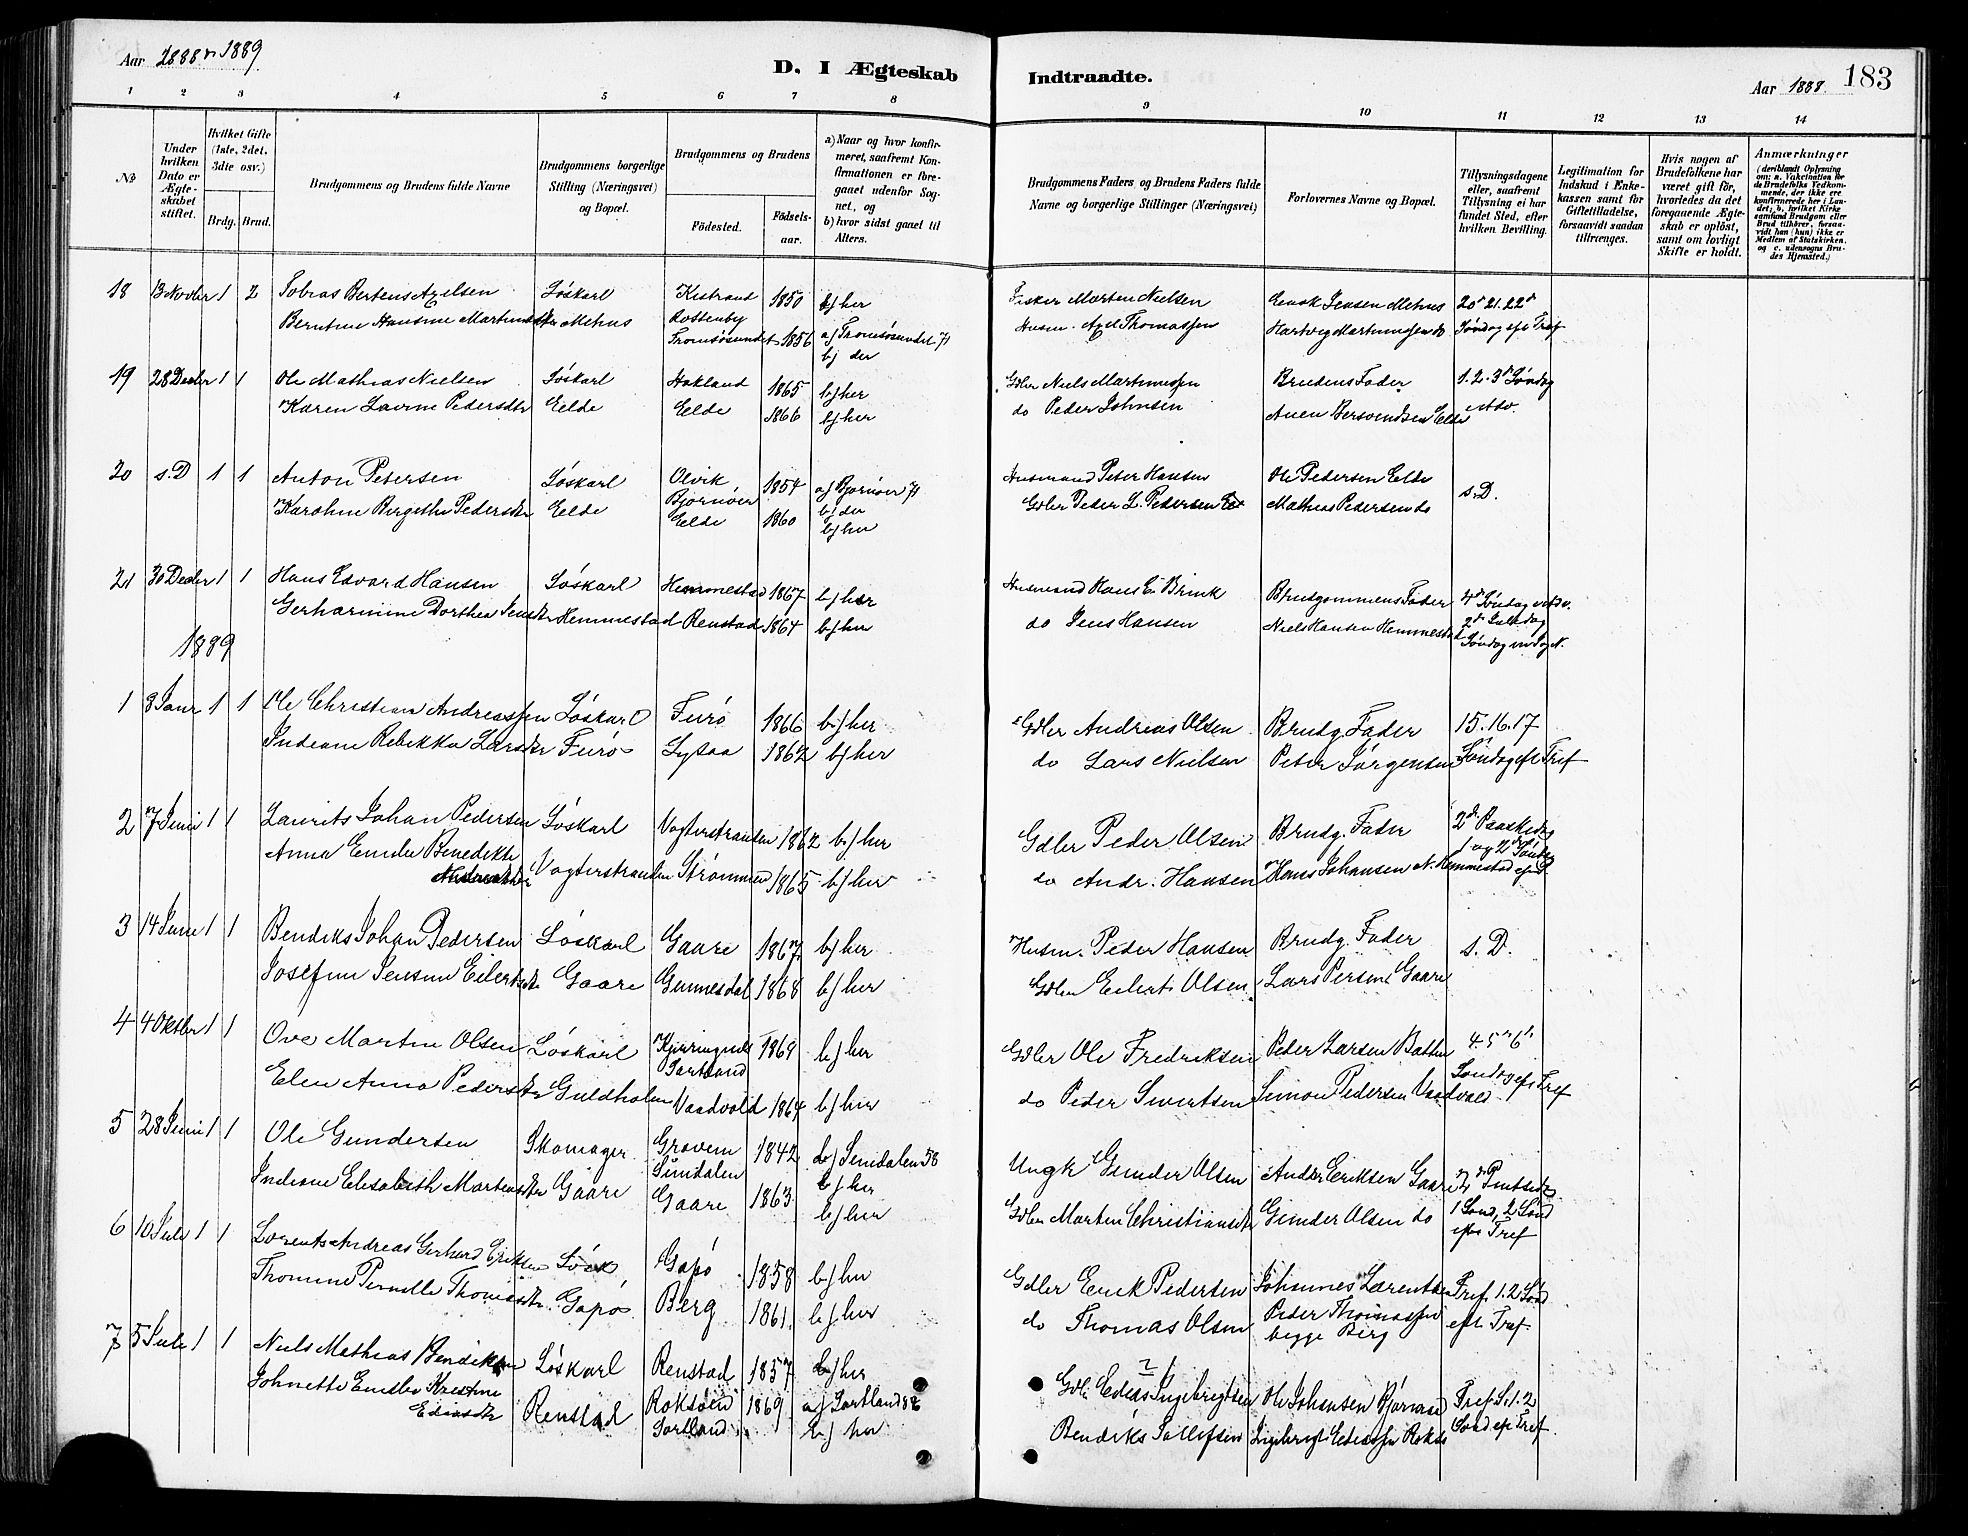 Aar 1888 n 1889
D. I Ægteskab Indtraadte.
Aar 1888. 183
1 2 3 4 5 6 7 8 9 10 11 12 13 14
No
Under hvilken Dato er Ægteskabet stiftet.
Hvilket Gifte (1ste, 2det, 3die osv.)
Brdg. Brud.
Brudgommens og Brudens fulde Navne
Brudgommens borgerlige Stilling (Næringsvei) og Bopæl.
Brudgommens og Brudens
Fødested. Fødselsaar.
a) Naar og hvor konfirmeret, saafremt Konfirmationen er foregaaet udenfor Sognet, og
b) hvor sidst gaaet til Alters.
Brudgommens Faders og Brudens Faders fulde Navne og borgerlige Stillinger (Næringsvei)
Forlovernes Navne og Bopæl.
Tillysningsdagene eller, saafremt Tillysning ei har fundet Sted, efter hvilken Bevilling.
Legitimation for Indskud i Enkekassen samt for Giftetilladelse, forsaavidt saadan tiltrænges.
Hvis nogen af Brudefolkene har været gift før, hvorledes da det foregaaende Ægteskab er opløst, samt om lovligt Skifte er holdt.
Anmærkninger
(deriblandt Oplysning om: a. Vakcination for de Brudefolks Vedkommende, der ikke ere konfirmerede her i Landet; b. hvilket Kirkesamfund Brudgom eller Brud tilhører, forsaavidt han (hun) ikke er Medlem af Statskirken. og c. udensogns Brudes Hjemsted.)
18 13 Novbr 1 2 Tobias Bertens Axelsen Löskarl Kistrand 1850 b) her Fisker Morten Nielsen Enok Jensen Mehus 20d 21. 22d
Mehus Tromsösundet 1856 a) Tromsösundet 71 Husm. Axel Thomassen Hartvig Martinussen do Söndag eft Tref
b) der
19 28 Decbr 1 1 Ole Mathias Nielsen Löskarl Hokland 1865 b) her Gdbr Niels Martinussen Brudens Fader 1. 2. 3d Söndag
Karen Lavine Pedersdtr Eelde Eelde 1866 b) her do Peder Johnsen Elde Adv.
20 s. D 1 1 Anton Petersen Löskarl Olvik 1854 a) Bjornöer 71 Husmand Peter Hansen Ole Pedersen Elde s. D.
Bjornöer b) der
Karoline Bergethe Pedersdtr Eelde Eelde 1860 b) her Gdbr Peder L. Pedersen Mathias Pedersen do
21 30 Decbr 1 1 Hans Edvard Hansen Löskarl Hemmestad 1867 b) her Husmand Hans E. Brink Brudgommens Fader 4d Söndag i Adv.
Dorthea Jensdtr Hemmestad Renstad 1864 b) her do Jens Hansen Niels Hansen Hemmestad 2d Juledag
Söndag
1889
1 3 Janr 1 1 Ole Christian Andreassen Löskarl Furö 1866 b) her Gdbr Andreas Olsen Brudg. Fader 15. 16. 17
Indiane Rebikka Larsdtr Furö 1862 b) her do Lars Nielsen Peter Jörgensen Söndag eft Tref
2 7 Juni 1 1 Laurits Johan Pedersen Löskarl Vogterstranden 1862 b) her Gdbr Peder Olsen Brudg. Fader 2d Paaskedag
Anna Emilie Benedikte Vogterstranden Strömmen 1865 b) her do Andr. Hansen Hans Johansen N. Hemmestad
3 14 Juni 1 1 Bendiks Johan Pedersen Löskarl Gaare 1867 b) her Husm. Peder Hansen Brudg. Fader s. D.
Josefine Jensine Eilertsdtr Gaare Gunnesdal 1868 b) her Gdbr Eilert Olsen Lars Persen Gaare
4 4 Oktbr 1 1 Ove Martin Olsen Löskarl Kjerringnes 1869 b) her Gdbr Ole Fredriksen Peder Larsen 4. 5. 6
Sortland Söndag eft Tref
Elen Anna Pedersdtr Guldholmen Vaadvold 1864 b) her do Peder Sivertsen Simon Pedersen Vaadvold
5 28 Juni 1 1 Ole Gundersen Skomager Gravem 1842 a) Sundalen 58 Ungk. Gunder Olsen Anders Eriksen Gaare 2d Pintsedag
Sundalen b) her
Indiane Elisabeth Martensdtr Gaare Gaare 1863 b) her Gdbr Morten Christiansen Gunder Olsen do 1 Sönd, 2 Sönd
efter Tref
6 10 Juli 1 1 Lorents Andreas Gerhard Eriksen Lösk Gapö 1858 b) her Gdbr Erik Pedersen Johannes Larentsen Tref. 1. 2 Sönd
Thomine Pernille Thomasdtr. Gapö Berg 1861. b) her do Thomas Olsen Peder Thomassen eft Tref.
begge Berg
7 5 Juli 1 1 Niels Mathias Bendiksen Löskarl Renstad 1857 b) her Gdbr Edias Ingebrigtsen Ole Johansen Tref. S. 1. 2
Johnette Emilie Kristine Renstad Roksöen 1869 a) Sortland 86 Bendiks Tollefsen Ingebrigt Ediassen Sönd eft Tref.
Ediasdtr Sortland b) her